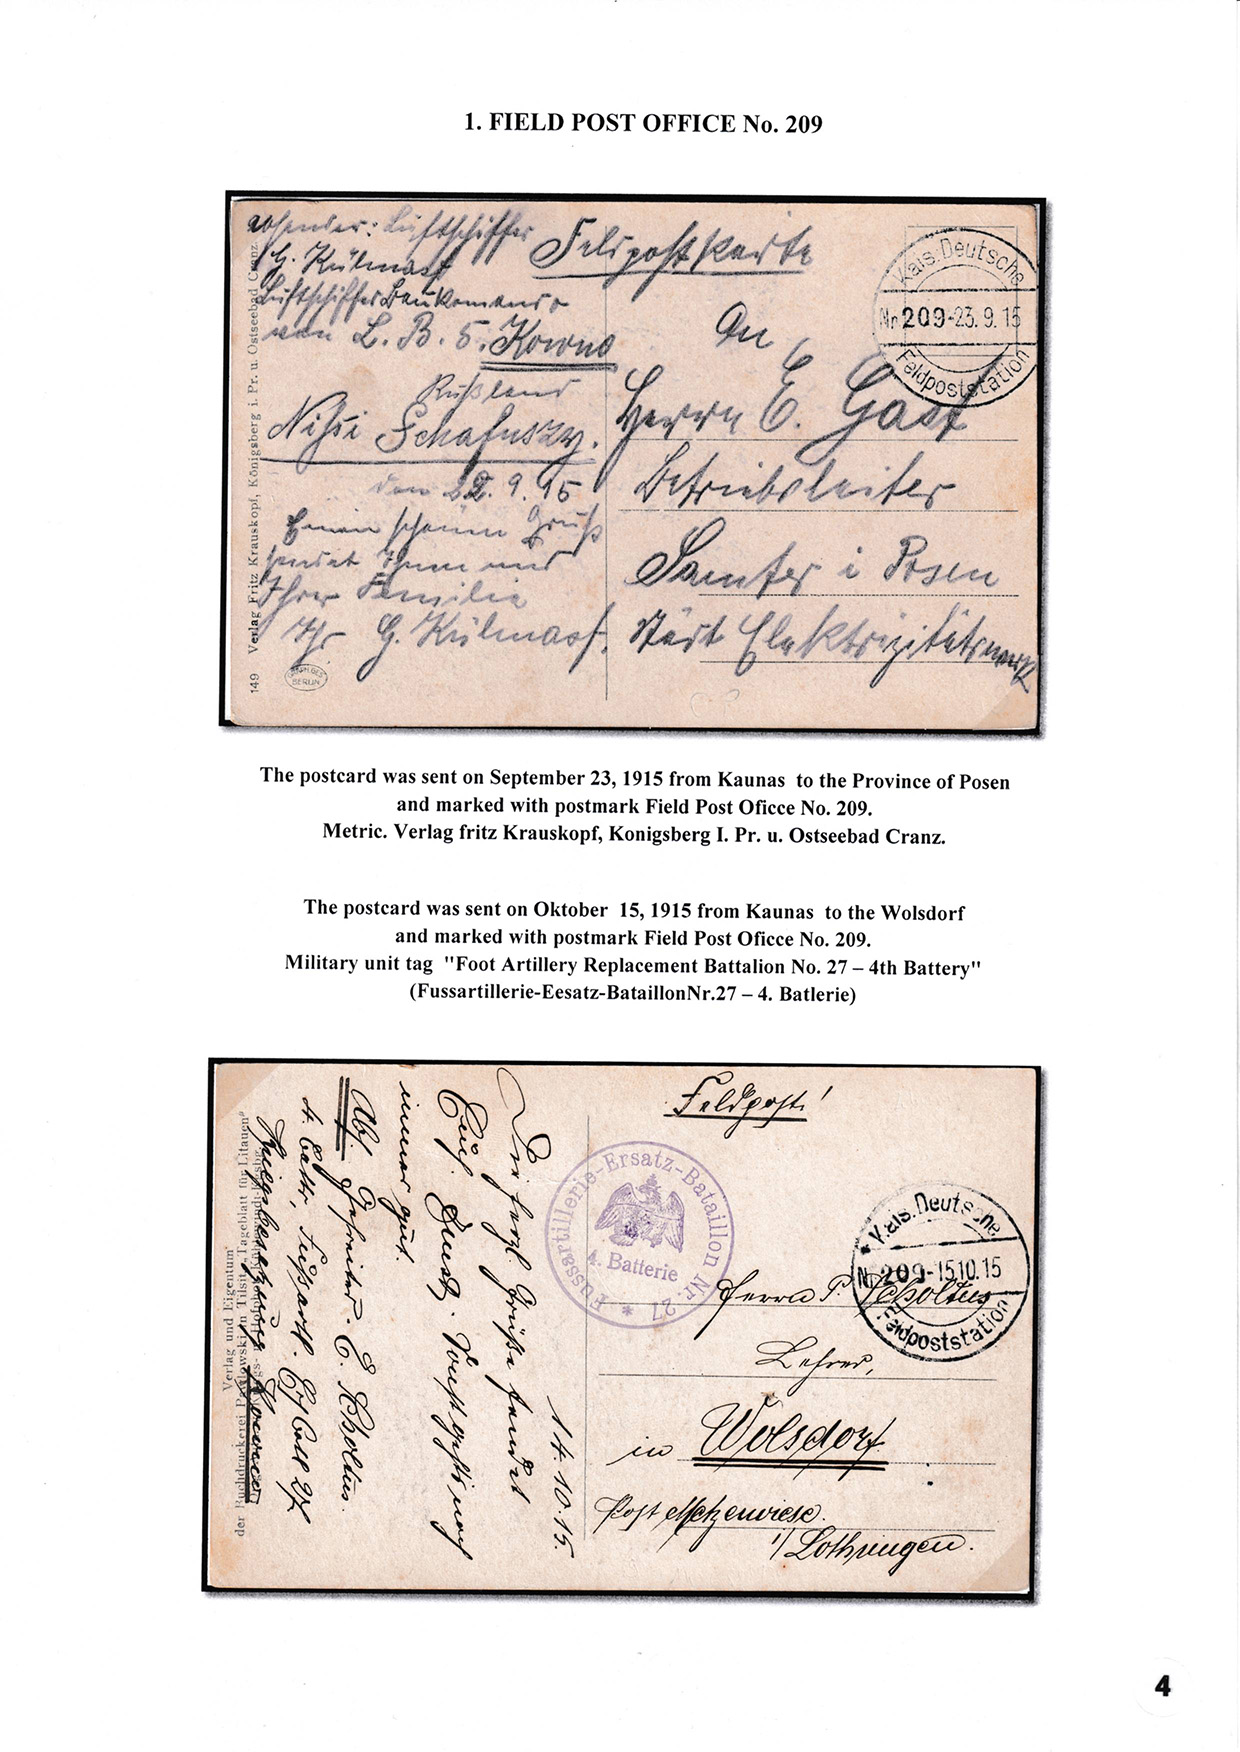 1. FIELD POST OFFICE No. 209
Absender: Luftschiffer
G. Külmast
Luftschifferbaukomando
von L. B. 5. Kowno
Rußland
Schafuszy.
den 22. 9. 15
Einen schönen Gruß
sendet Ihnen und
Ihrer Familie
Ihr G. Külmast.
Feldpostkarte
An
Herrn E. Gast
Betriebsleiter
Samter i Posen
Städt Elektrizitätswerk
Kais. Deutsche
Nr. 209-23. 9. 15
Feldpoststation
149 Verlag Fritz Krauskopf, Königsberg i. Pr. u. Ostseebad Cranz.
BERLIN
The postcard was sent on September 23, 1915 from Kaunas to the Province of Posen
and marked with postmark Field Post Oficce No. 209.
Metric. Verlag fritz Krauskopf, Konigsberg I. Pr. u. Ostseebad Cranz.
The postcard was sent on Oktober 15, 1915 from Kaunas to the Wolsdorf
and marked with postmark Field Post Oficce No. 209.
Military unit tag "Foot Artillery Replacement Battalion No. 27 – 4th Battery"
(Fussartillerie-Eesatz-BataillonNr.27 – 4. Batlerie)
Feldpost!
Fussartillerie-Ersatz-Bataillon Nr. 27 *
4. Batterie
* Kais. Deutsche
Nr. 209-15.10.15
Feldpoststation
Herrn P. Scholtus
Lehrer,
in Wolsdorf
Post Metzerwiese.
i/ Lothringen.
14. 10. 15.
Die herzl. Grüße sendet
Euch Ernst.
immer gut.
Abs. Gefreiter. E. Scholtus.
4. Battr. Fußartl. Ers Batl 27
Kowno
Verlag und Eigentum
der Buchdruckerei Pawlowski in Tilsit „Tageblatt für Litauen“
4